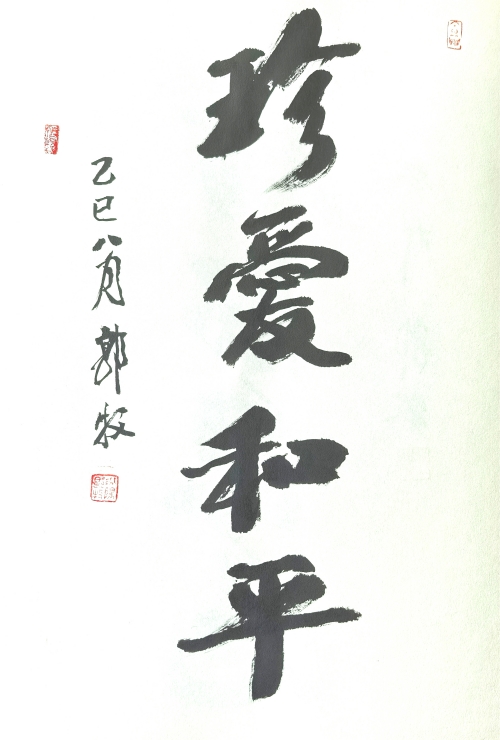 珍爱和平
乙巳八月郭牧